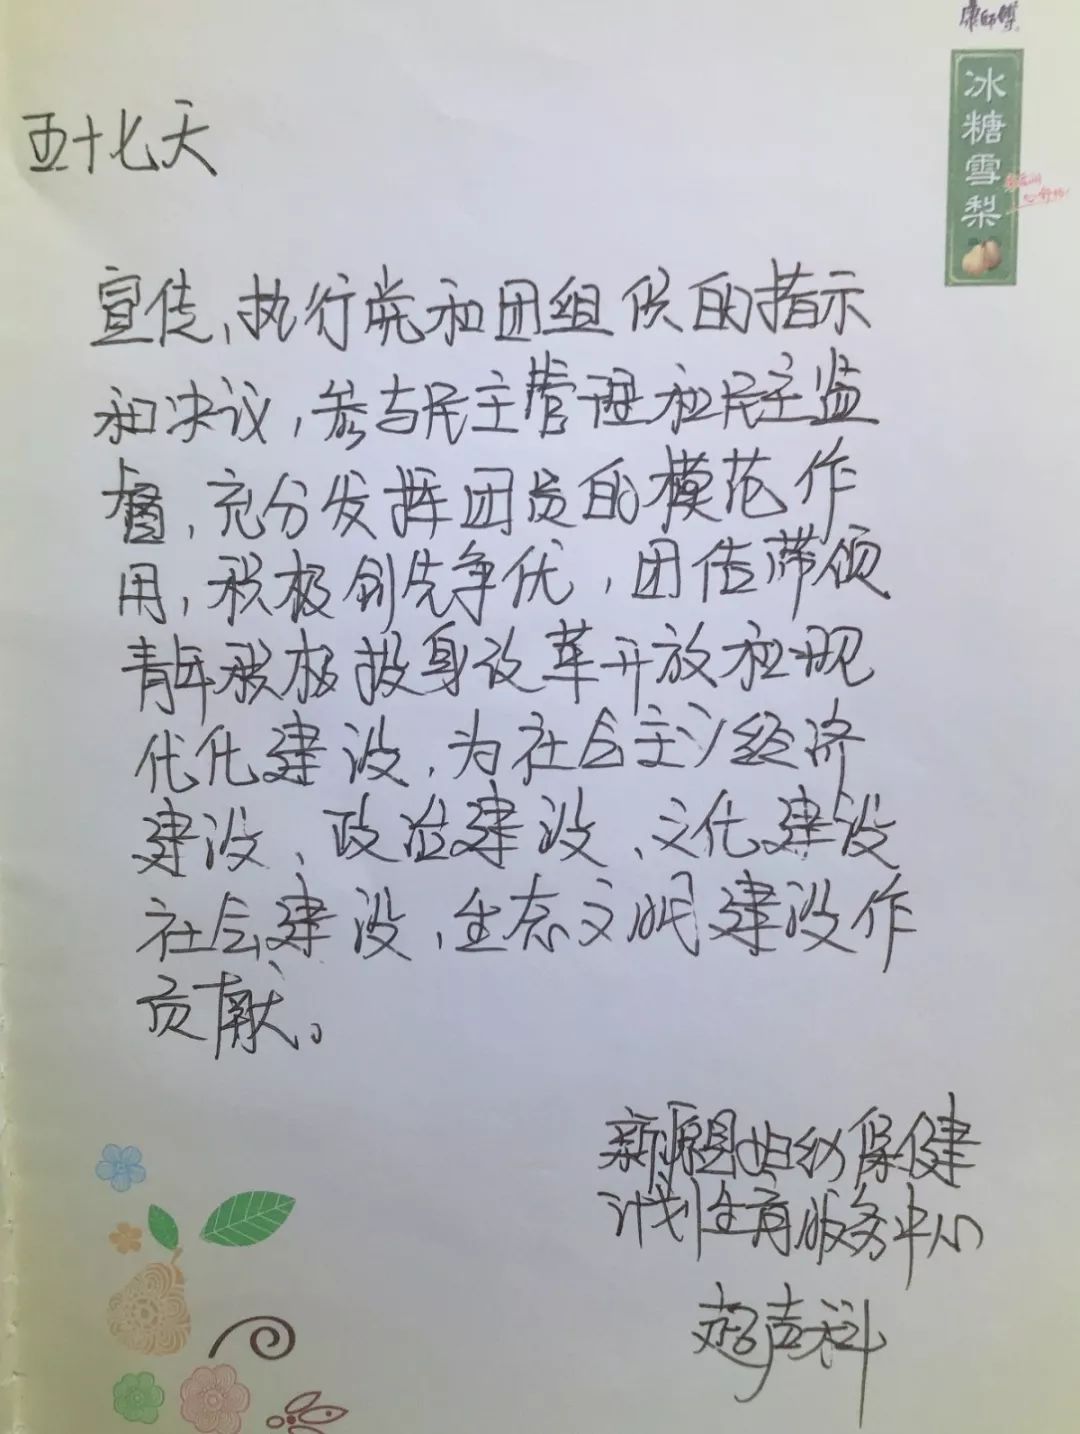 康師傅
冰糖雪梨
五十七天
宣传、执行党和团组织的指示
和决议，参与民主管理和民主监
督，充分发挥团员的模范作
用，积极创先争优，团结带领
青年积极投身改革开放和现
代化建设，为社会主义经济
建设、政治建设、文化建设
社会建设、生态文明建设作
贡献。
新源县妇幼保健
计划生育服务中心
超声科